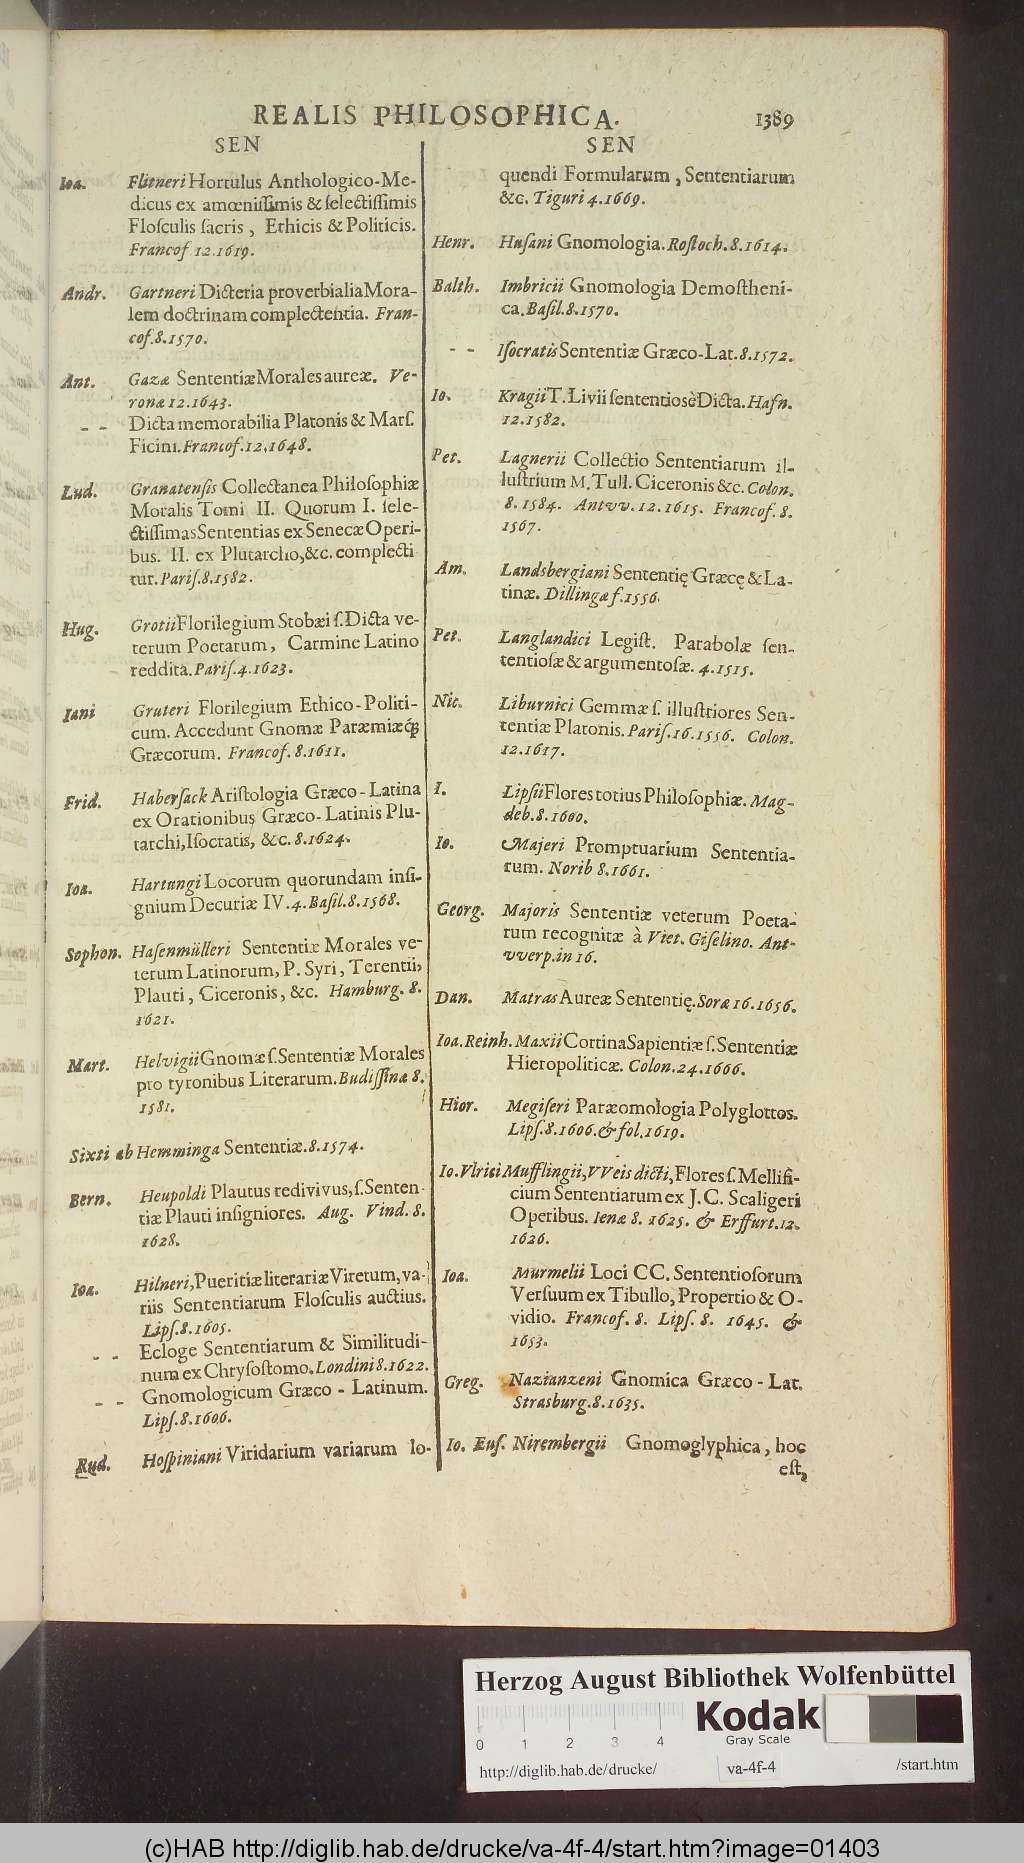 REALIS PHILOSOPHICA. 1389
SEN
Ioa. Flitneri Hortulus Anthologico-Me-
dicus ex amœnissimis & selectissimis
Flosculis sacris, Ethicis & Politicis.
Francof 12.1619.
Andr. Gartneri Dicteria proverbialia Mora-
lem doctrinam complectentia. Fran-
cof.8.1570.
Ant. Gazæ Sententiæ Morales aureæ. Ve-
ronæ 12.1643.
- - Dicta memorabilia Platonis & Mars.
Ficini. Francof.12.1648.
Lud. Granatensis Collectanea Philosophiæ
Moralis Tomi II. Quorum I. sele-
ctissimas Sententias ex Senecæ Operi-
bus. II. ex Plutarcho, &c. complecti
tur. Paris.8.1582.
Hug. Grotii Florilegium Stobæi s. Dicta ve-
terum Poetarum, Carmine Latino
reddita. Paris.4.1623.
Iani Gruteri Florilegium Ethico-Politi-
cum. Accedunt Gnomæ Paræmiæq́;
Græcorum. Francof.8.1611.
Frid. Habersack Aristologia Græco-Latina
ex Orationibus Græco-Latinis Plu-
tarchi, Isocratis, &c.8.1624.
Ioa. Hartungi Locorum quorundam insi-
gnium Decuriæ IV.4.Basil.8.1568.
Sophon. Hasenmülleri Sententiæ Morales ve-
terum Latinorum, P. Syri, Terentii,
Plauti, Ciceronis, &c. Hamburg. 8.
1621.
Mart. Helvigii Gnomæ s. Sententiæ Morales
pro tyronibus Literarum. Budissinæ 8.
1581.
Sixti ab Hemminga Sententiæ.8.1574.
Bern. Heupoldi Plautus redivivus, s. Senten-
tiæ Plauti insigniores. Aug. Vind. 8.
1628.
Ioa. Hilneri, Pueritiæ literariæ Viretum, va-
riis Sententiarum Flosculis auctius.
Lips.8.1605.
- - Ecloge Sententiarum & Similitudi-
num ex Chrysostomo. Londini 8.1622.
- - Gnomologicum Græco-Latinum.
Lips.8.1606.
Rud. Hospiniani Viridarium variarum lo-
SEN
quendi Formularum, Sententiarum
&c. Tiguri 4.1669.
Henr. Husani Gnomologia. Rostoch.8.1614.
Balth. Imbricii Gnomologia Demostheni-
ca. Basil.8.1570.
- - Isocratis Sententiæ Græco-Lat.8.1572.
Io. Kragii T. Livii sententiosè Dicta. Hafn.
12.1582.
Pet. Lagnerii Collectio Sententiarum il-
lustrium M. Tull. Ciceronis &c. Colon.
8.1584. Antvv.12.1615. Francof.8.
1567.
Am. Landsbergiani Sententię Græcę & La-
tinæ. Dillingæ f.1556.
Pet. Langlandici Legist. Parabolæ sen-
tentiosæ & argumentosæ. 4.1515.
Nic. Liburnici Gemmæ s. illustriores Sen-
tentiæ Platonis. Paris.16.1556. Colon.
12.1617.
I. Lipsii Flores totius Philosophiæ. Mag-
deb.8.1600.
Io. Majeri Promptuarium Sententia-
rum. Norib 8.1661.
Georg. Majoris Sententiæ veterum Poeta-
rum recognitæ à Viet. Giselino. Ant-
vverp.in 16.
Dan. Matras Aureæ Sententię. Soræ 16.1656.
Ioa. Reinh. Maxii Cortina Sapientiæ s. Sententiæ
Hieropoliticæ. Colon.24.1666.
Hior. Megiseri Paræomologia Polyglottos.
Lips.8.1606. & fol.1619.
Io. Vlrici Mufflingii, VVeis dicti, Flores s. Mellifi-
cium Sententiarum ex J.C. Scaligeri
Operibus. Ienæ 8. 1625. & Erffurt.12.
1626.
Ioa. Murmelii Loci CC. Sententiosorum
Versuum ex Tibullo, Propertio & O-
vidio. Francof. 8. Lips. 8. 1645. &
1653.
Greg. Nazianzeni Gnomica Græco-Lat.
Strasburg.8.1635.
Io. Eus. Nirembergii Gnomoglyphica, hoc
est,
Herzog August Bibliothek Wolfenbüttel
Kodak
Gray Scale
0 1 2 3 4
http://diglib.hab.de/drucke/ va-4f-4 /start.htm
(c)HAB http://diglib.hab.de/drucke/va-4f-4/start.htm?image=01403